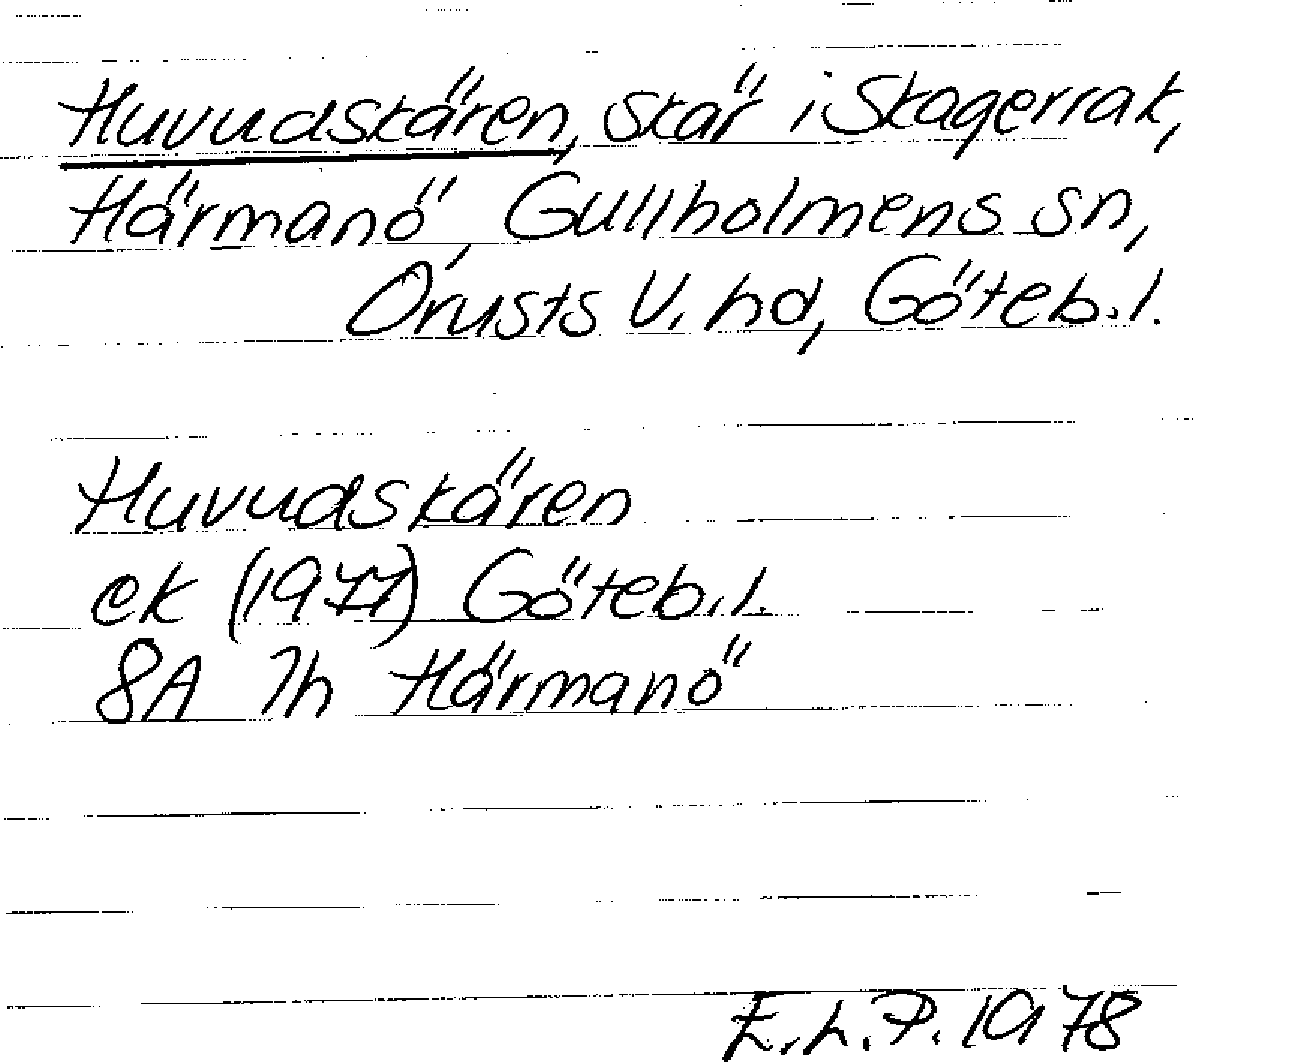 Huvudskären, skär i Skagerrak,
Härmanö, Gullholmens sn,
Orusts V. hd, Göteb.l.
Huvudskären
ek (1977) Göteb.l.
8A 7h Härmanö
E.L.P. 1978